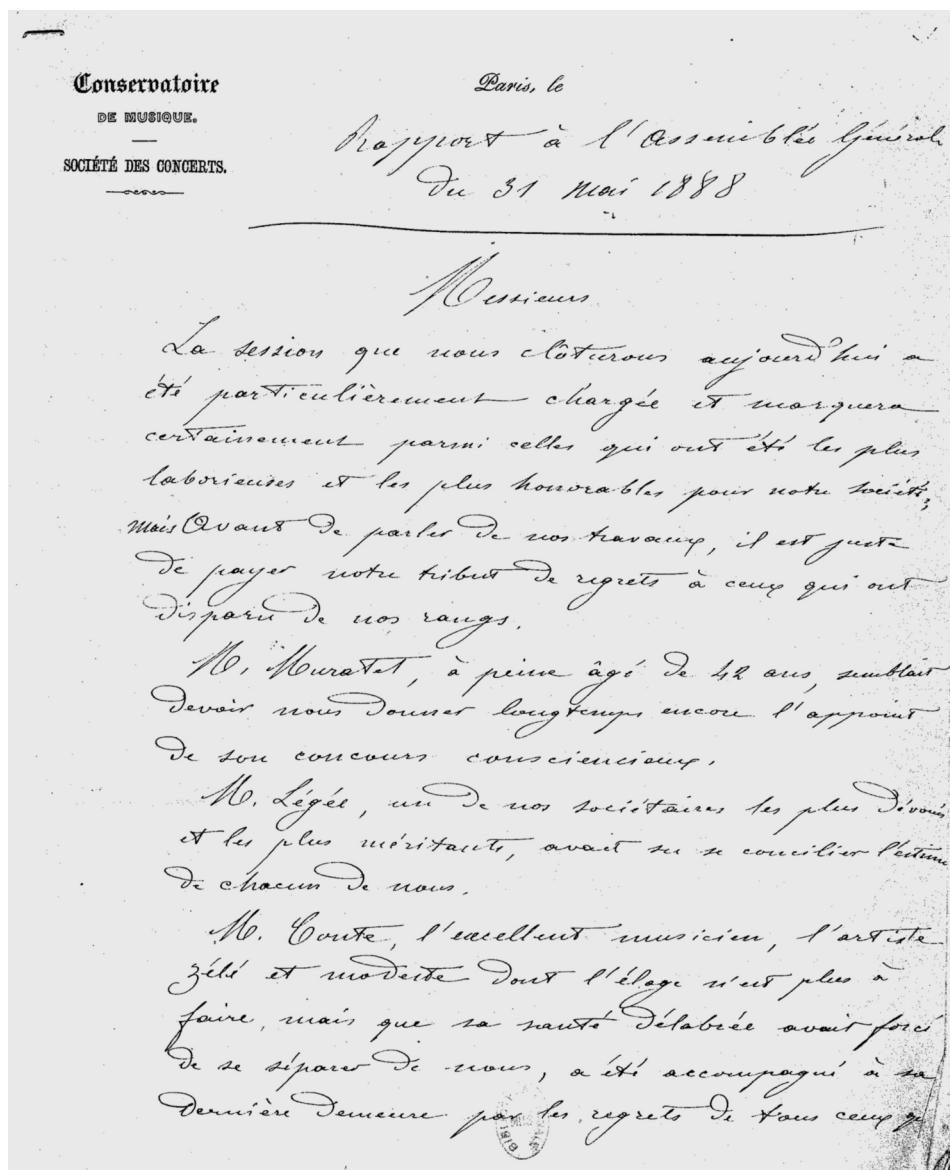 Conservatoire
DE MUSIQUE.
SOCIÉTÉ DES CONCERTS.
Paris, le
Rapport à l'Assemblée Générale
du 31 Mai 1888
Messieurs
La session que nous clôturons aujourd'hui a
été particulièrement chargée et marquera
certainement parmi celles qui ont été les plus
laborieuses et les plus honorables pour notre société,
mais Avant de parler de nos travaux, il est juste
de payer notre tribut de regrets à ceux qui ont
disparu de nos rangs.
M. Muratet, à peine âgé de 42 ans, semblait
devoir nous donner longtemps encore l'appoint
de son concours consciencieux.
M. Légée, un de nos sociétaires les plus dévoués
et les plus méritants, avait su se concilier l'estime
de chacun de nous.
M. Conte, l'excellent musicien, l'artiste
zélé et modeste dont l'éloge n'est plus à
faire, mais que sa santé délabrée avait forcé
de se séparer de nous, a été accompagné à sa
dernière demeure par les regrets de tous ceux